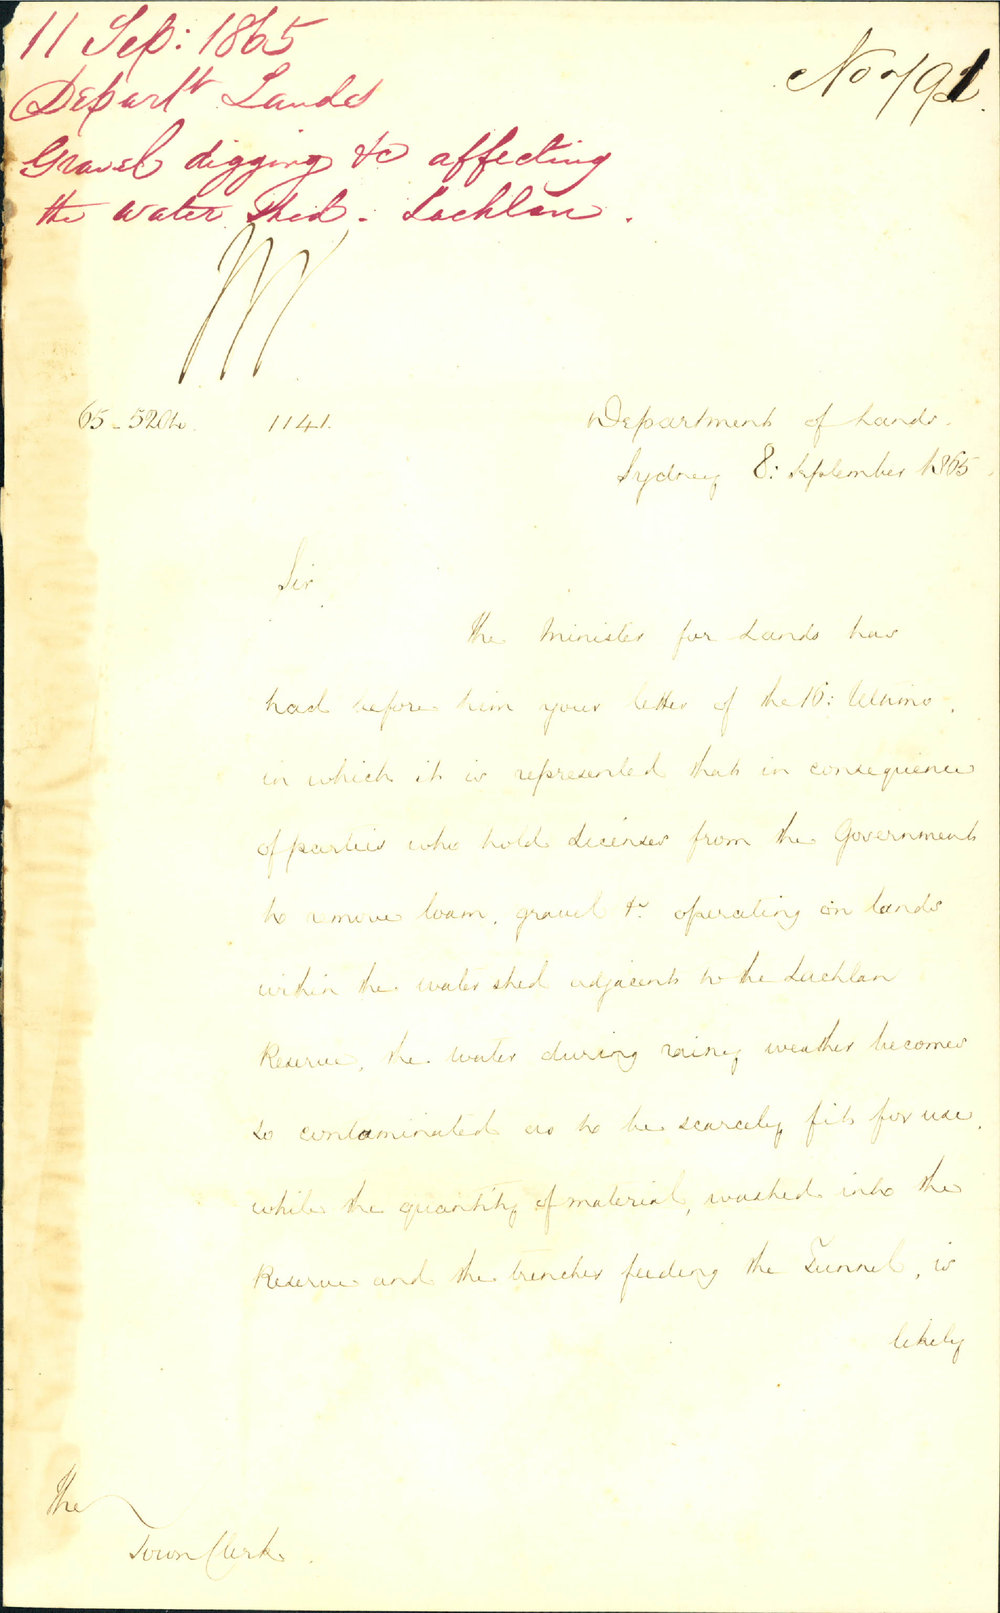 11 Sep: 1865
Departt Lands
Gravel digging &c affecting
the water shed. Lachlan.
No 791.
65-5204. 1141.
Department of Lands.
Sydney 8: September 1865.
Sir,
The Minister for Lands has
had before him your letter of the 16: Ultimo,
in which it is represented that in consequence
of parties who hold Licenses from the Government
to remove loam, gravel &c operating on lands
within the water shed adjacent to the Lachlan
Reserve, the water during rainy weather becomes
so contaminated as to be scarcely fit for use,
while the quantity of material, washed into the
Reserve and the trenches feeding the Tunnel, is
likely
The
Town Clerk.